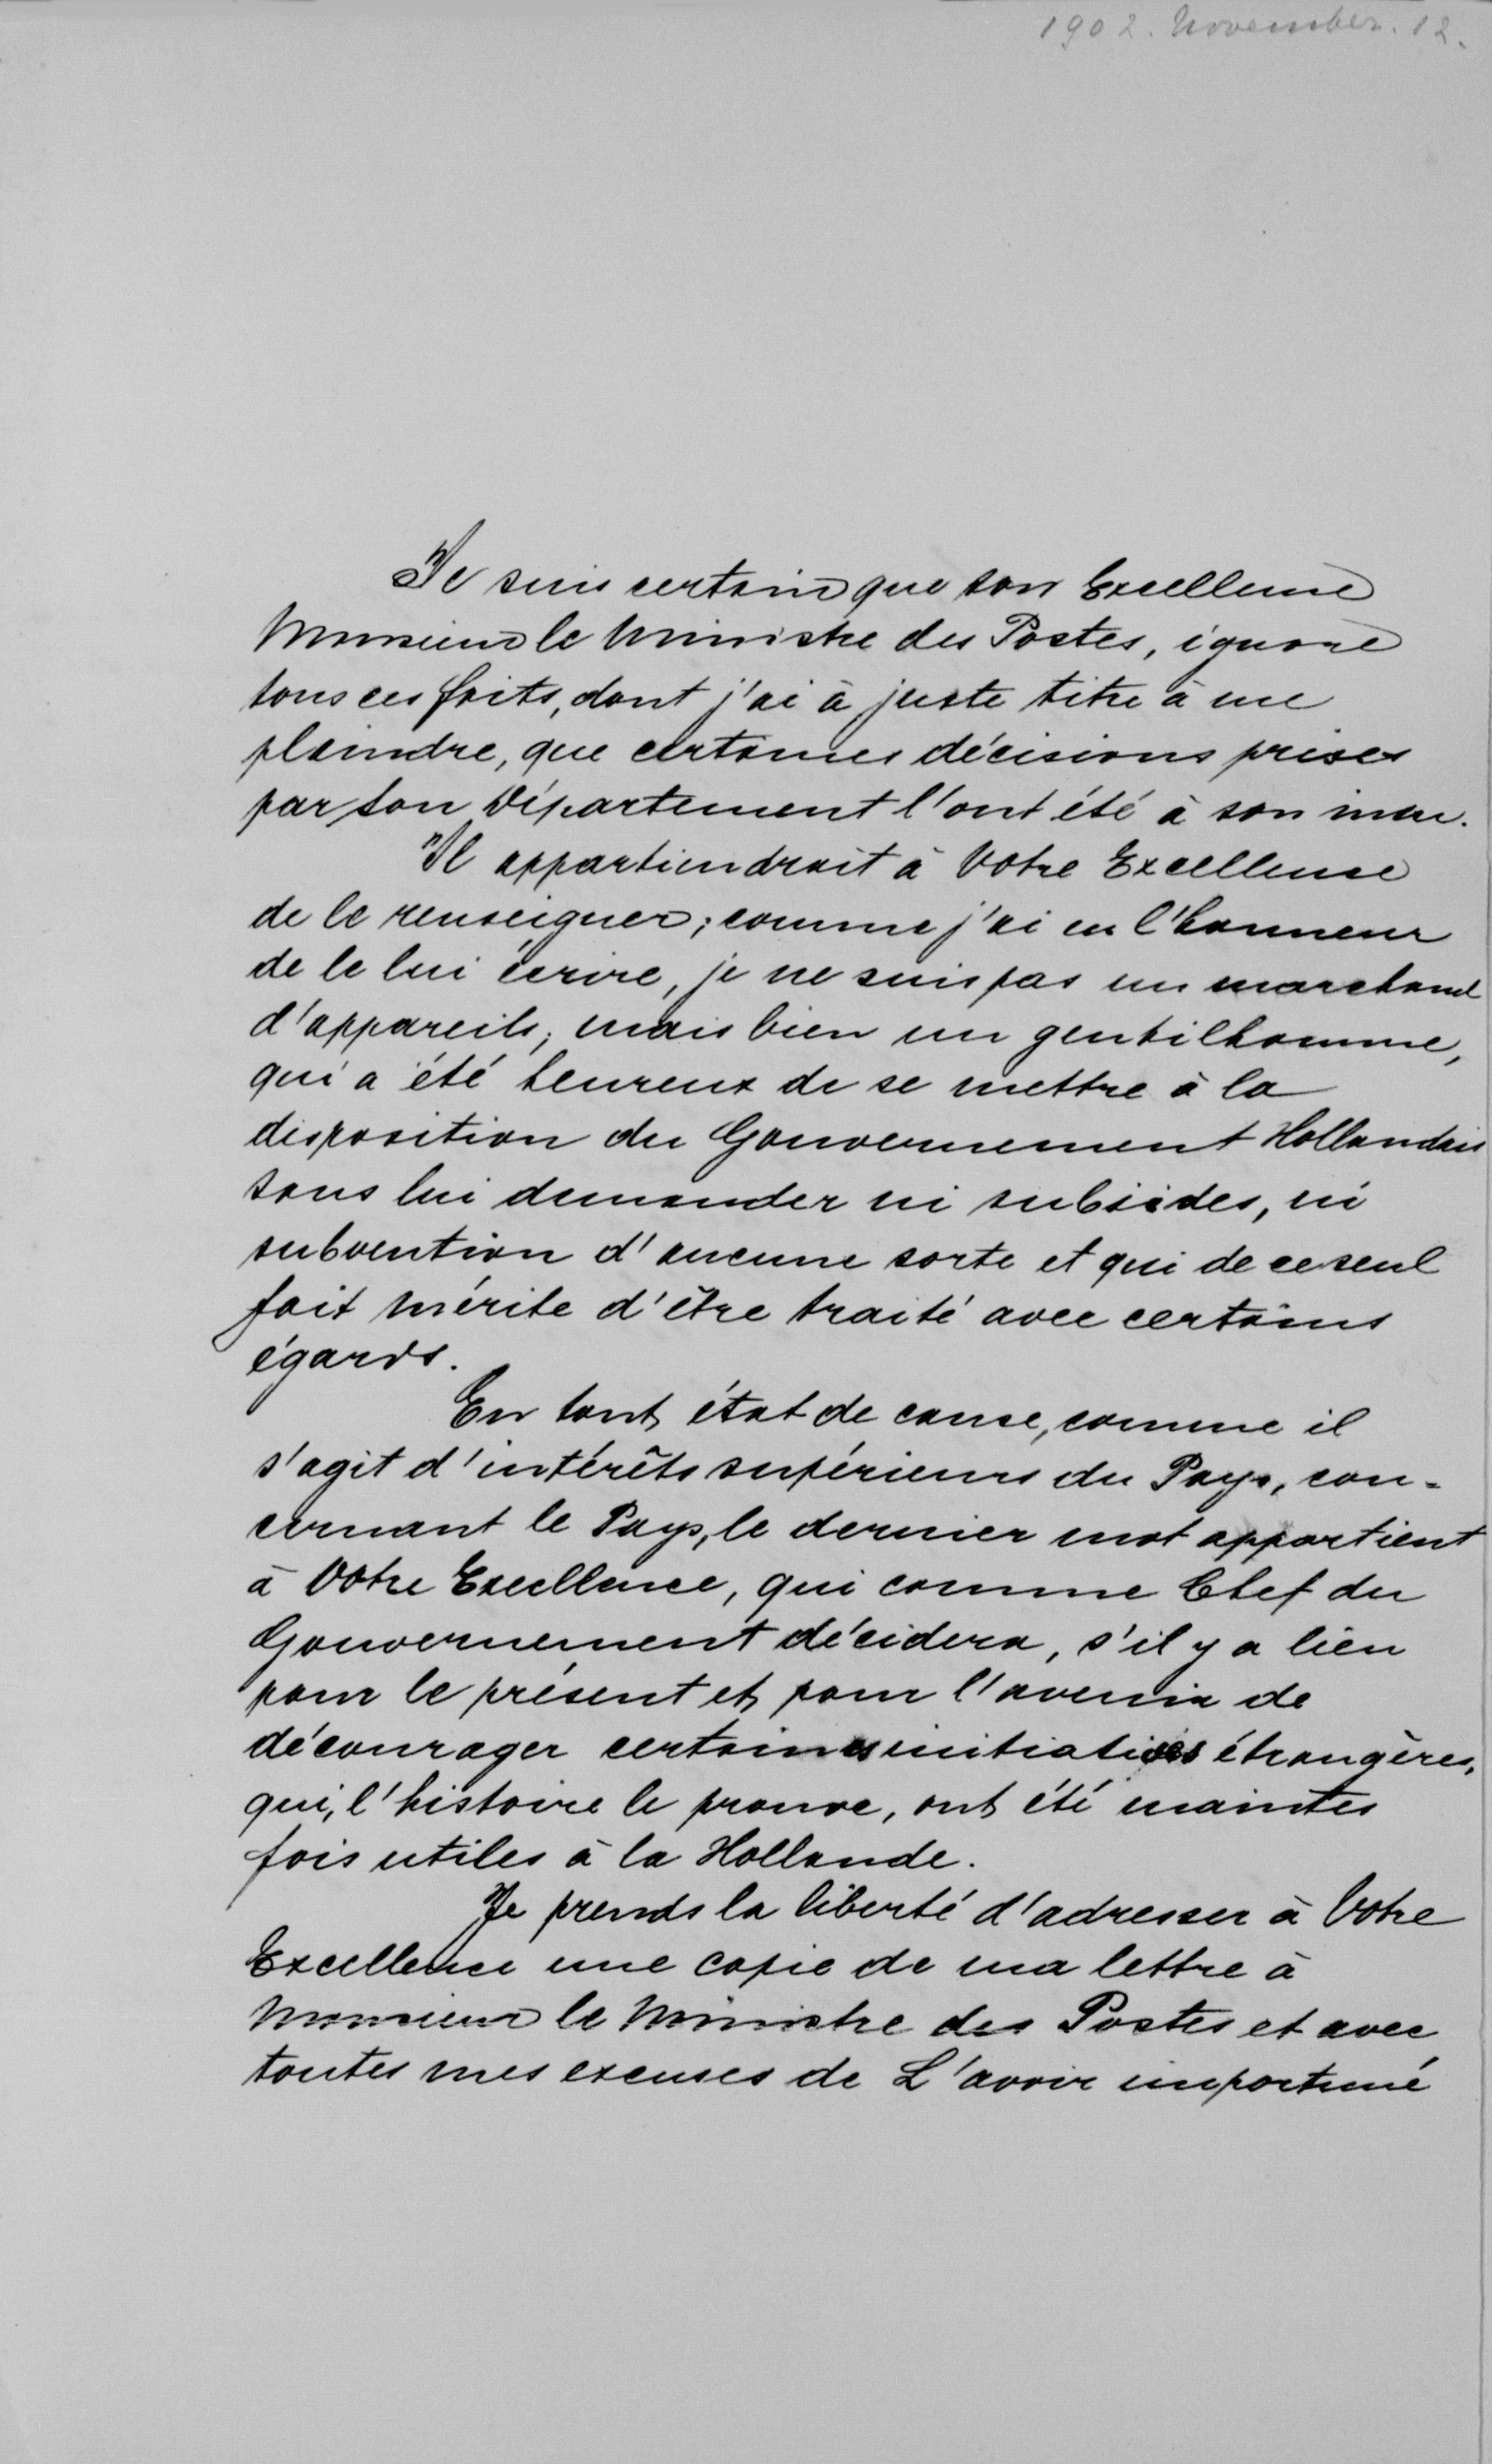 1902. November. 12.
Je suis certain que son Excellence
Monsieur le Ministre des Postes, ignore
tous ces faits, dont j'ai à juste titre à me
plaindre, que certaines décisions prises
par son Département l'ont été à son insu.
Il appartiendrait à Votre Excellence
de le renseigner; comme j'ai eu l'honneur
de le lui écrire, je ne suis pas un marchand
d'appareils; mais bien un gentilhomme,
qui a été heureux de se mettre à la
disposition du Gouvernement Hollandais
sans lui demander ni subsides, ni
subvention d'aucune sorte et qui de ce seul
fait mérite d'être traité avec certains
égards.
En tout état de cause, comme il
s'agit d'intérêts supérieurs du Pays, con-
cernant le Pays, le dernier mot appartient
à Votre Excellence, qui comme Chef du
Gouvernement décidera, s'il y a lieu
pour le présent et pour l'avenir de
décourager certaines initiatives étrangères,
qui, l'histoire le prouve, ont été maintes
fois utiles à la Hollande.
Je prends la liberté d'adresser à Votre
Excellence une copie de ma lettre à
Monsieur le Ministre des Postes et avec
toutes mes excuses de L'avoir importuné